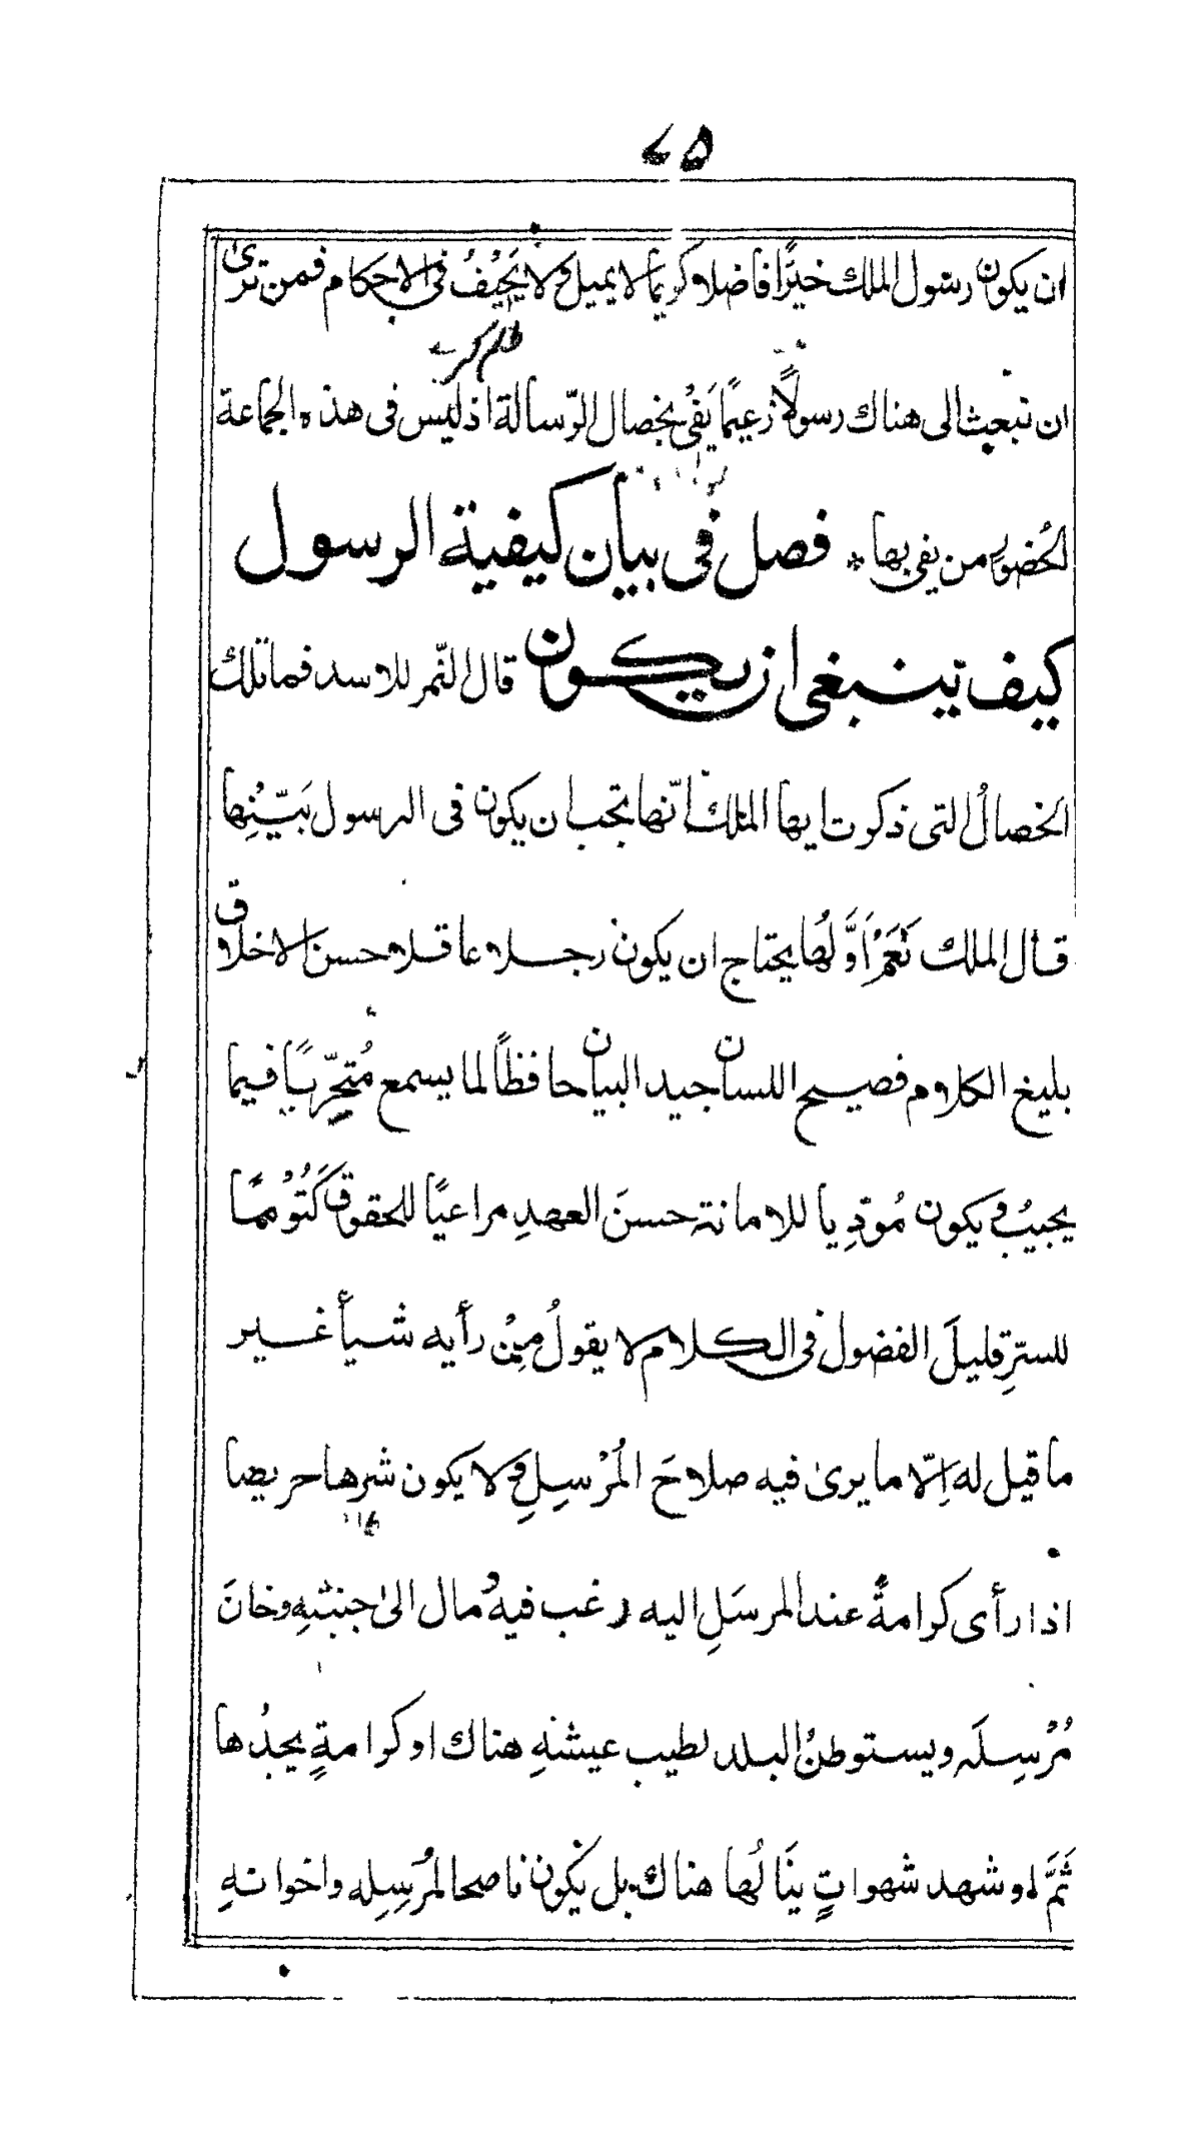 ٤٥
ان يكون رسول الملك خيّرًا فاضلا وكريما لا يميل ولا يَحِيْفُ فى الاحكام فمن ترىٰ
ان نبعث الى هناك رسولًا زعيمًا يَفِىْ بخصال الرّسالة اذ ليس فى هذه الجماعة
ظلم كرے
الحُضور من يفى بها * فصل فى بيان كيفية الرسول
كيف ينبغى ان يكون قال النّمر للاسد فما تلك
الخصالُ التى ذكرت ايها الملك انّها تجب ان يكون فى الرسول بَيّنْها
قال الملك نَعَمْ اَوَّلُها يحتاج ان يكون رجلا عاقلا حسن الاخلاق
بليغ الكلام فصيح اللسان جيد البيان حافظًا لما يسمع مُتحرِّيًا فيما
يجيبُ ويكون مُودِّيا للامانة حسنَ العهدِ مراعيًا للحقوق كَتُوْمًا
للسّرِ قليلَ الفضول فى الكلام لا يقولُ مِنْ رأيه شيأ غير
ما قيل له اِلّا ما يرىٰ فيه صلاحَ المُرْسِلِ ولا يكون شرها حريصا
اذا رأى كرامةً عند المرسَلِ اليه رغب فيه ومال الىٰ جنبتهِ وخانَ
مُرْسِلَه ويستوطنُ البلد لطيب عيشتهِ هناك او كرامةٍ يجدُها
ثَمَّ او شهد شهواتٍ ينَالُها هناك بل يكون ناصحا لمُرْسِلِه واخوانهِ